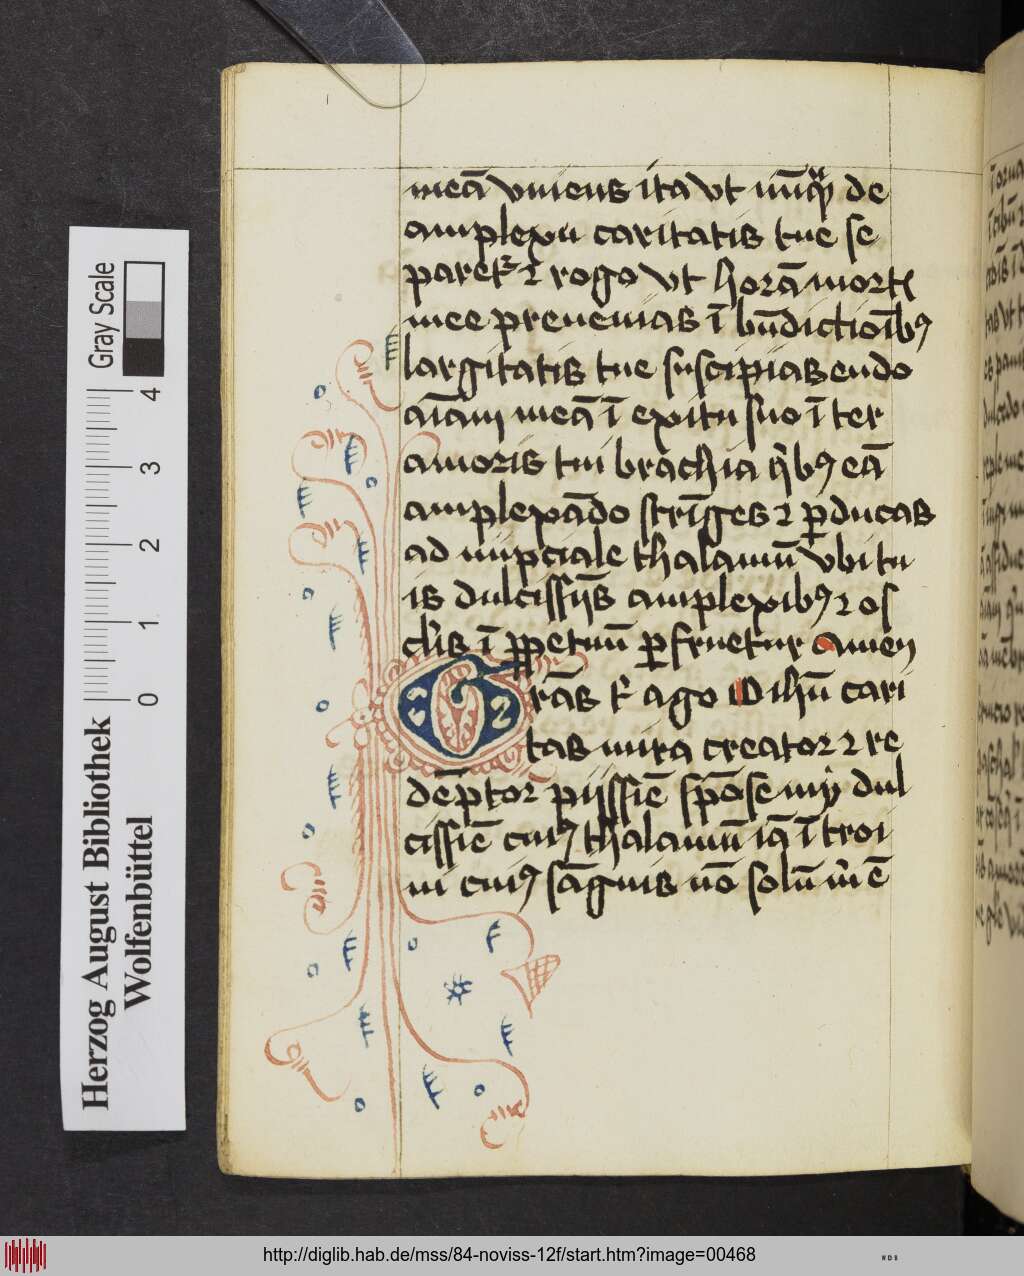 meā vniens ita vt nūq̄ de
amplexu caritatis tue se
paret᷑ ⁊ rogo vt horā mortꝭ
mee preuenias ī bn̄dictiōibꝰ
largitatis tue suscipias endo
aīam meā ī exitu suo īter
amoris tui brachia qͥbꝰ eā
amplexādo strīges ⁊ ꝑducas
ad nupciale thalamū vbi tu
is dulcissīis amplexibꝰ ⁊ os
cl̓is ī ꝑpetuū ꝑfruetur amen
Grās tͥ ago O ihū cari
tas mira creator ⁊ re
dēptor pijssīe spōse mi dul
cissīe cuiꝰ thalamū iā ītroi
ui cuiꝰ sāguis nō solū m̄ ē
Herzog August Bibliothek
Wolfenbüttel
0 1 2 3 4
Gray Scale
http://diglib.hab.de/mss/84-noviss-12f/start.htm?image=00468